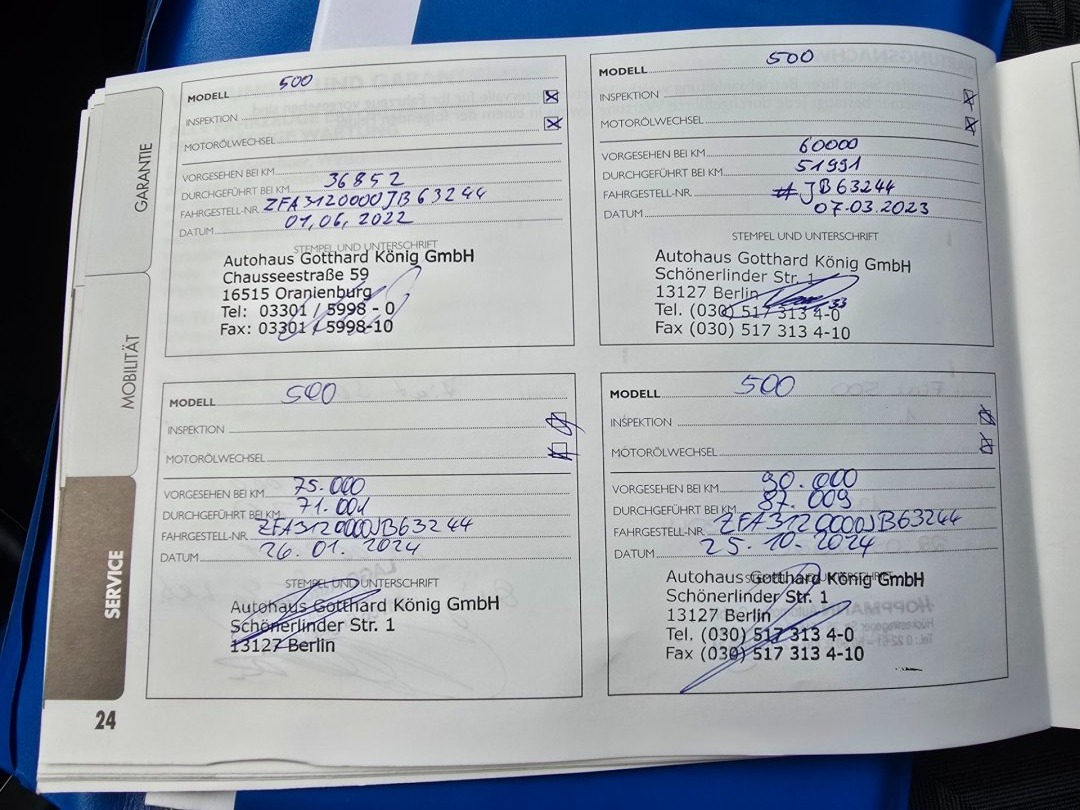 GARANTIE
MOBILITÄT
SERVICE
24
MODELL 500
INSPEKTION
MOTORÖLWECHSEL
VORGESEHEN BEI KM
DURCHGEFÜHRT BEI KM 36852
FAHRGESTELL-NR. ZFA3120000JB63244
DATUM 01,06,2022
STEMPEL UND UNTERSCHRIFT
Autohaus Gotthard König GmbH
Chausseestraße 59
16515 Oranienburg
Tel: 03301 / 5998 - 0
Fax: 03301 / 5998-10
MODELL 500
INSPEKTION
MOTORÖLWECHSEL
VORGESEHEN BEI KM 60000
DURCHGEFÜHRT BEI KM 51991
FAHRGESTELL-NR. #JB63244
DATUM 07.03.2023
STEMPEL UND UNTERSCHRIFT
Autohaus Gotthard König GmbH
Schönerlinder Str. 1
13127 Berlin
Tel. (030) 517 313 4-0
Fax (030) 517 313 4-10
MODELL 500
INSPEKTION
MOTORÖLWECHSEL
VORGESEHEN BEI KM 75.000
DURCHGEFÜHRT BEI KM 71.001
FAHRGESTELL-NR. ZFA3120000JB63244
DATUM 26.01.2024
STEMPEL UND UNTERSCHRIFT
Autohaus Gotthard König GmbH
Schönerlinder Str. 1
13127 Berlin
MODELL 500
INSPEKTION
MOTORÖLWECHSEL
VORGESEHEN BEI KM 90.000
DURCHGEFÜHRT BEI KM 87.009
FAHRGESTELL-NR. ZFA3120000JB63244
DATUM 25.10.2024
STEMPEL UND UNTERSCHRIFT
Autohaus Gotthard König GmbH
Schönerlinder Str. 1
13127 Berlin
Tel. (030) 517 313 4-0
Fax (030) 517 313 4-10